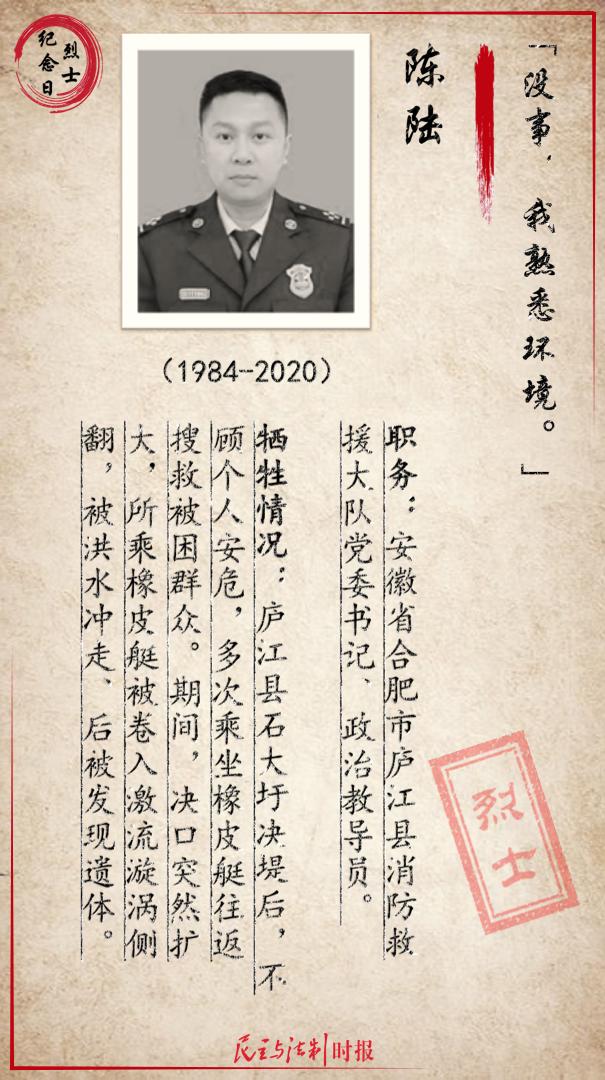 烈士
纪念日
「没事，我熟悉环境。」
陈陆
（1984--2020）
职务：安徽省合肥市庐江县消防救
援大队党委书记、政治教导员。
牺牲情况：庐江县石大圩决堤后，不
顾个人安危，多次乘坐橡皮艇往返
搜救被困群众。期间，决口突然扩
大，所乘橡皮艇被卷入激流漩涡侧
翻，被洪水冲走、后被发现遗体。
烈士
民主与法制时报